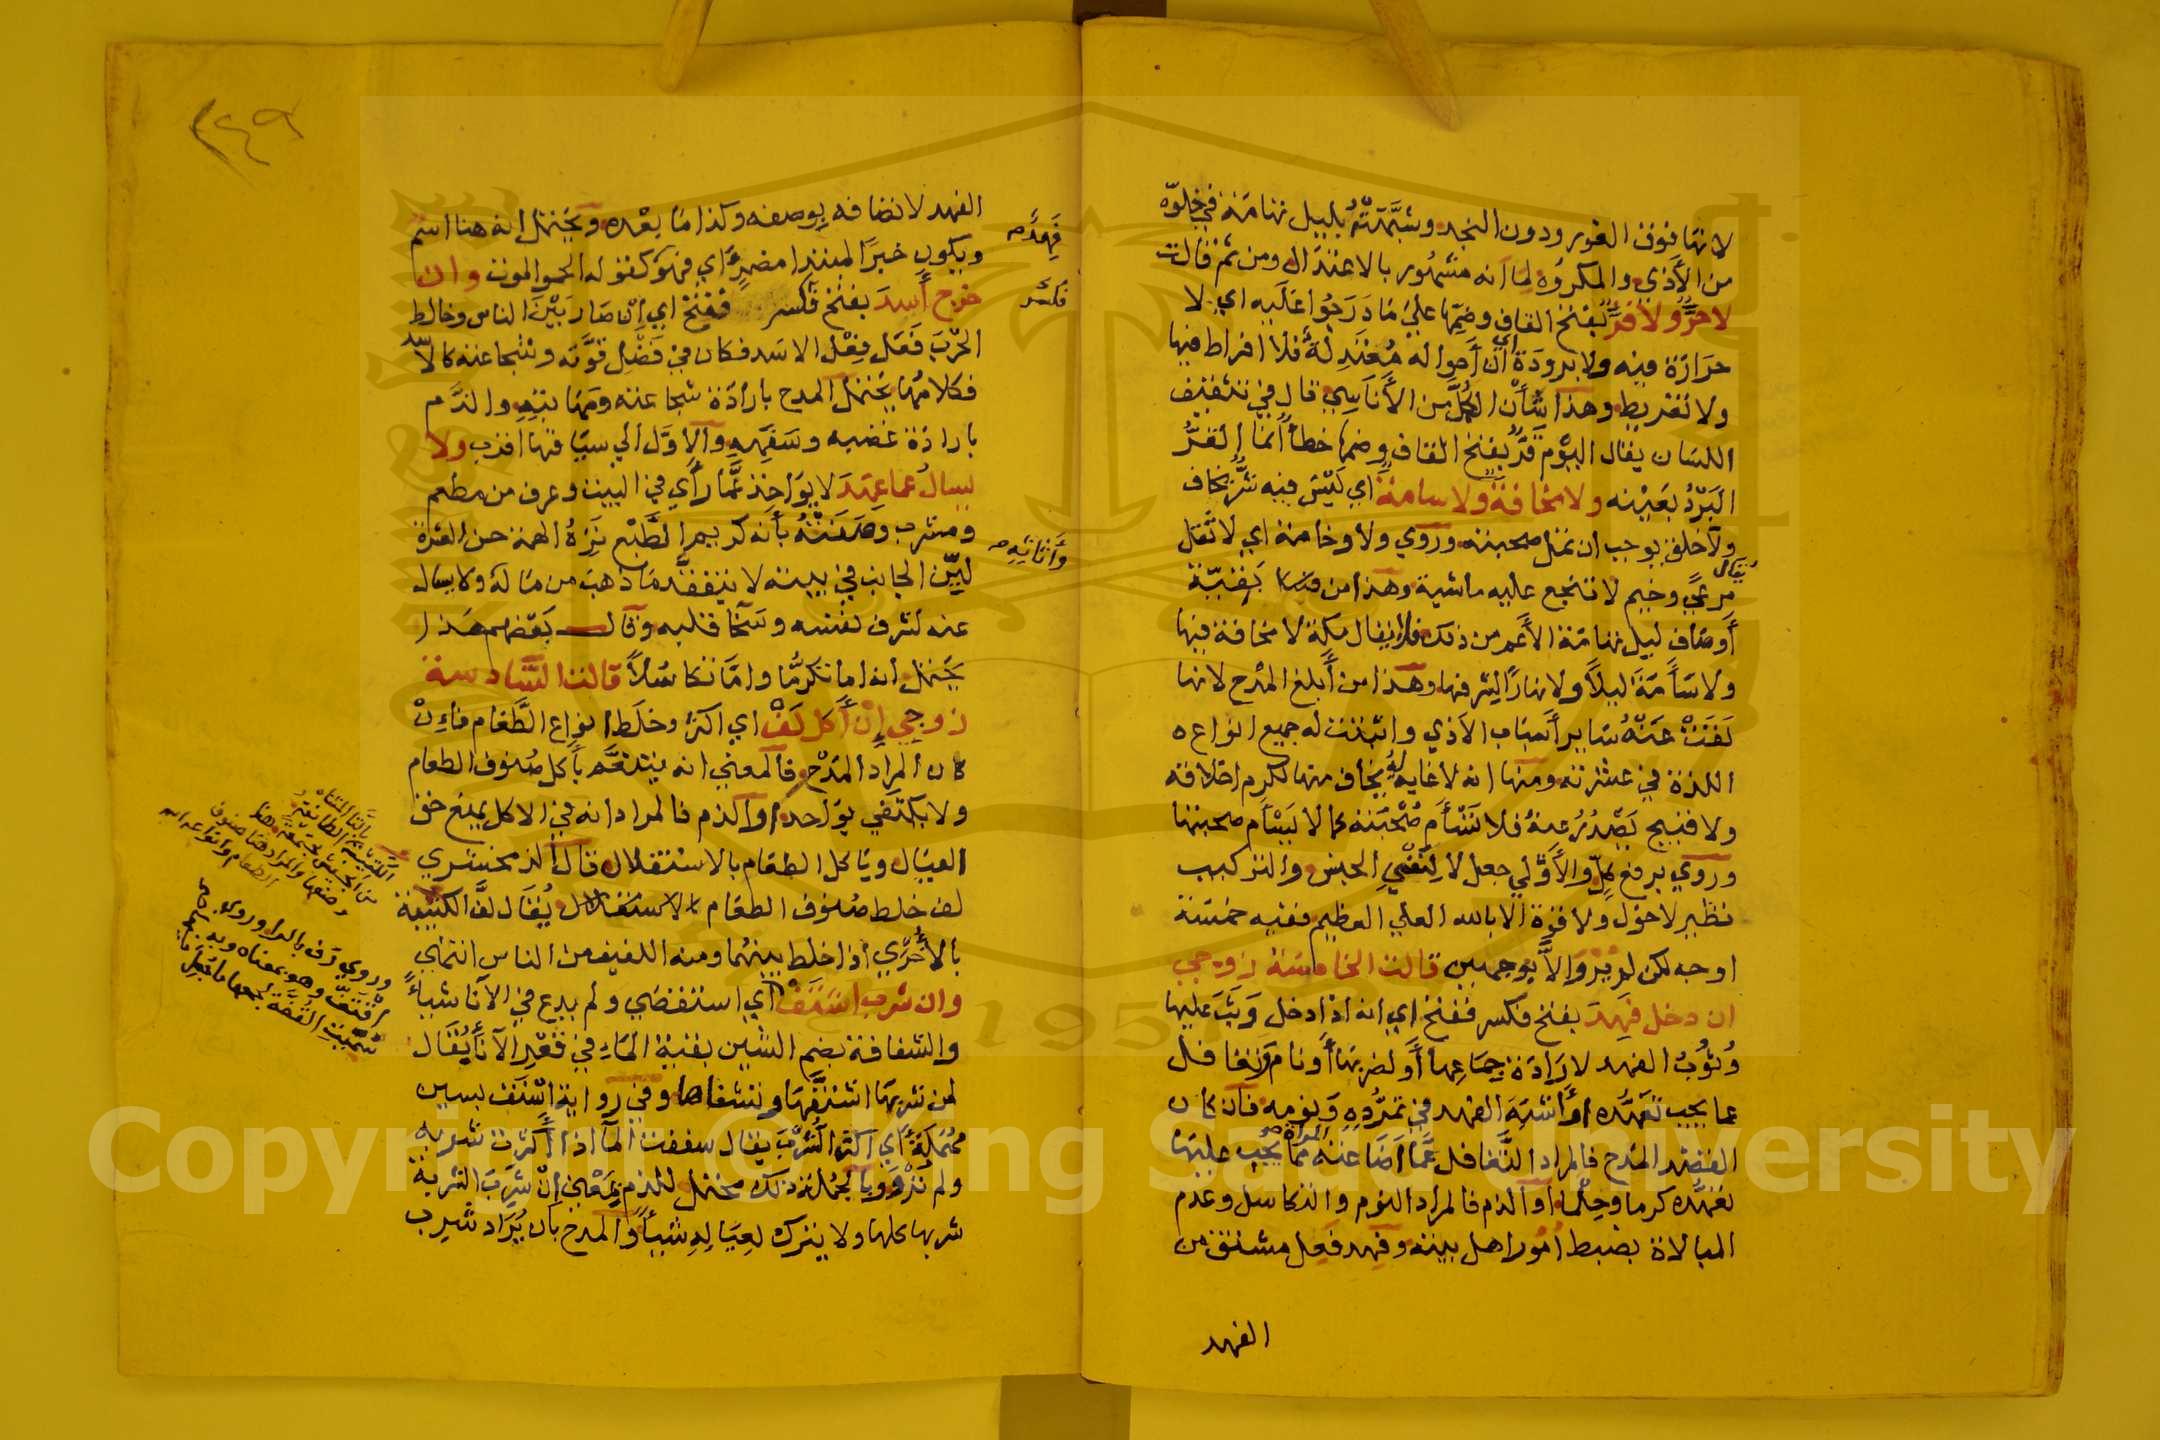 لانها فوق الغور ودون النجد وشبَّهَتْهُ بليل تهامَة في خلوّه
من الأذي والمكروه لما انه مشهور بالاعتدال ومن ثم قالت
لا حرٌّ ولا قرٌّ بفتح القاف وضمّها علي ما درجوا عَلَيه اي لا
حرَارَة فيه ولا برودَة اي أن أحواله مُعْتَدِلَة فلا افراط فيها
ولا تفريط وهذا شأن الكمَّل من الأناسي قال في تثقيف
اللسان يقال اليَوْم قَرٌّ بفتح القاف وضمها خطأ انما القُرُّ
البَرْدُ بعَيْنه ولا مخافةَ ولا سامةَ اي لَيْسَ فيه شَرٌّ يخاف
ولا خلق يوجب ان تمل صحبته وروي ولا وخامة اي لا ثقل
يقال مرعيً وخيم لا تنجع عليه ماشية وهذا من بَقيّة
أوصَاف ليل تهامَة الأعم من ذلك يقال مكة لا مخافة فيها
ولا سَأمَة ليلاً ولا نهارًا لشرفها وهذا من أبلغ المدح لانها
نفَتْ عَنْهُ سَاير أسْبَاب الأذي واثبتت له جميع انواعه
اللذة في عشرته ومنها انه لا غايه له يخاف منها لكرم اخلاقه
ولا قبيح يَصْدُرُ عنهُ فلا تَسْأَم صُحْبَته كما لا يَسْأم صحبتها
وروي برفع كلٍّ والأوّلي جعل لا لِنَفْيِ الجنس والتركيب
نظير لا حول ولا قوة الا بالله العلي العظيم ففيه خمسَة
اوجه لكن لم يُرْوَ إلاَّ بوجهين قالت الخامسَة زوجي
ان دخل فَهِدَ بفتح فكسر ففتح اي انه اذا دخل وَثَبَ عليها
وُثوُبُ الفهد لارَادَة جِمَاعِها أو لضربها أو نام وتغافل
عما يجب تعَهُّده أو أشبَهَ الفهد في تمَرُّدِهِ وَنومه فان كان
القصْد المدح فالمراد التَّغافل عَمَّا أضَاعته المرأة مما يَجب عليهَا
تعَهُّده كرما وحِلْما أو الذم فالمراد النوم والتكاسل وعدم
المبالاة بضبط أمُور اهل بيته وفَهِد فَعِل مشتق من
الفهد
٢٤٩
الفهد لاتصافه بوصفه وكذا مَا بعْدَه ويحْتمَل انه هنا اسم
ويكون خبرًا لمبتدإ مضمرٍ اي فهوَ كقوله الحمو الموت وان
خرج أسِدَ بفتح فكسر ففتح اي ان صَار بَيْن الناس وخالط
الحَرْبَ فَعَل فِعْل الاسَد فكان في فَضْل قوَّته وشجاعته كالاسد
فكلامُها يحْتمل المدح بارادَة شجاعته ومَهابَتِهِ والذَّم
بارادَة غضبه وسَفَهِهِ والأوَّل الي سيَاقها اقرب ولا
يسأل عما عهِدَ لا يؤاخِذ عَمَّا رأي في البيت وعرف من مطعم
ومشرب وصَفَتْهُ بأنه كريم الطَّبْع نَزِهُ الهمة حسن العشرة
ليِّن الجانب في بيته لا يتفقَّد مَا ذهبَ من مَاله ولا يسال
عنه لشرف نفسه وسَخَا قلبه وقال بَعْضهم هَذا
يحتمل انه اما تكرمًّا وامَّا تكاسُلاً قالت السَّادسة
زوجي إنْ أكَل لَفَّ اي اكثر وخلَط انواع الطَّعَام فاءِنْ
كان المراد المدْح فالمعني انه يتنعَّم بأكل صنوف الطعام
ولا يكتفي بوَاحد أو الذم فالمراد انه في الاكل يمنع حق
العيَال ويأكل الطعَام بالاستقلال قال الزمخشري
لف خلط صنوف الطعَام يُقَال لفَّ الكتيبَة
بالأُخْري اذا خلط بينهُما ومنه اللفيف من الناس انتهي
وان شرب اشتَفَّ اي استقصَي ولم يدع في الآنا شيئاً
والشفافة بضم الشين بقية المَاء في قعْر الآنا يُقَال
لمن شربهَا اشتَفَّهَا وتشفاها وفي رواية اسْتَفَّ بسين
مُهْمَلَة أي اكثر الشُّرْبَ يقال سففت الماَ اذا أكثرت شربه
ولم تَرْوِ وبالجُمْلة ذلك محتمل للذم بمَعْني إنْ شَرِبَ الشربة
شربها كلها ولا يترك لِعِيَالِهِ شيئاً والمدح بان يُرَاد شَرِب
فَهِدٌ صح
فكسْر
وأثاثه صح
وروي رَف بالراء وروي